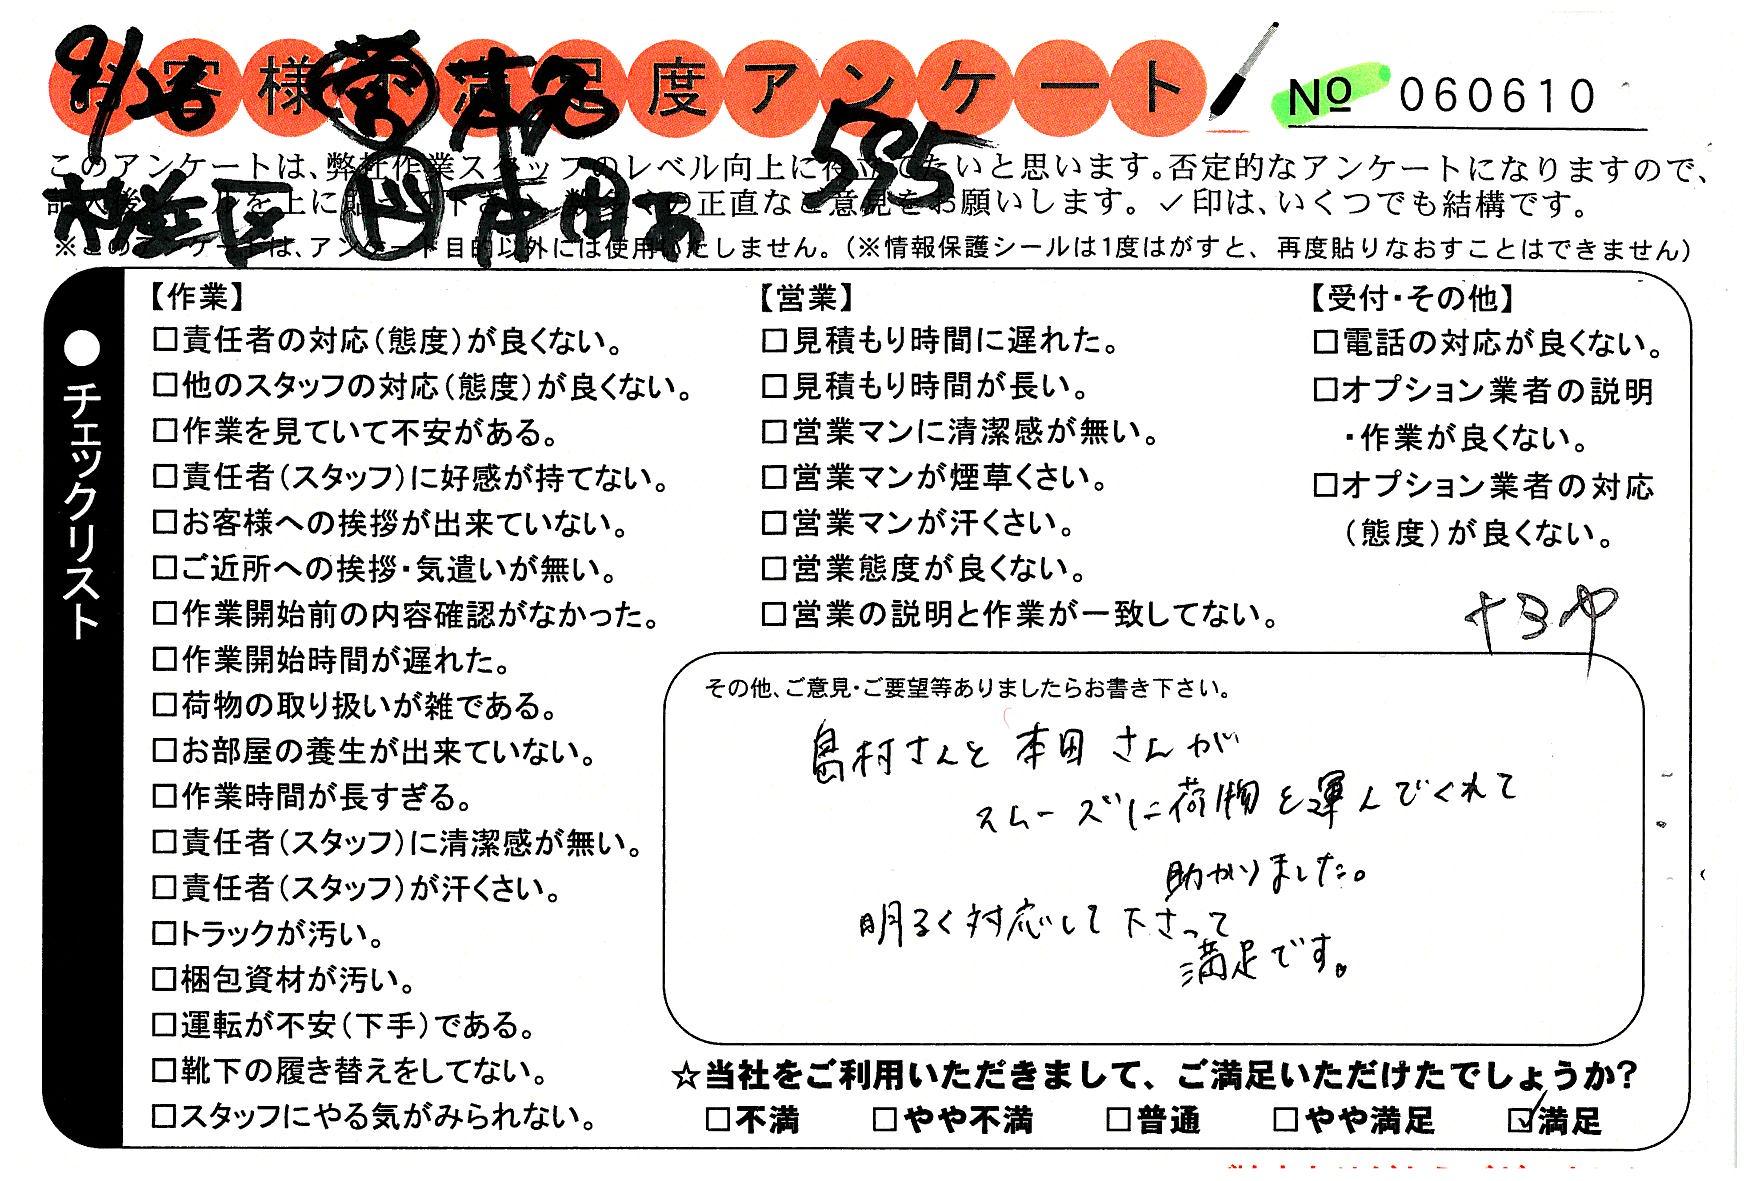 お客様不満足度アンケート
No 060610
585
このアンケートは、弊社作業スタッフのレベル向上に役立てたいと思います。否定的なアンケートになりますので、
の正直なご意見をお願いします。✓印は、いくつでも結構です。
※このアンケートは、アンケート目的以外には使用いたしません。(※情報保護シールは1度はがすと、再度貼りなおすことはできません)
●チェックリスト
【作業】
□責任者の対応(態度)が良くない。
□他のスタッフの対応(態度)が良くない。
□作業を見ていて不安がある。
□責任者(スタッフ)に好感が持てない。
□お客様への挨拶が出来ていない。
□ご近所への挨拶・気遣いが無い。
□作業開始前の内容確認がなかった。
□作業開始時間が遅れた。
□荷物の取り扱いが雑である。
□お部屋の養生が出来ていない。
□作業時間が長すぎる。
□責任者(スタッフ)に清潔感が無い。
□責任者(スタッフ)が汗くさい。
□トラックが汚い。
□梱包資材が汚い。
□運転が不安(下手)である。
□靴下の履き替えをしてない。
□スタッフにやる気がみられない。
【営業】
□見積もり時間に遅れた。
□見積もり時間が長い。
□営業マンに清潔感が無い。
□営業マンが煙草くさい。
□営業マンが汗くさい。
□営業態度が良くない。
□営業の説明と作業が一致してない。
【受付・その他】
□電話の対応が良くない。
□オプション業者の説明
・作業が良くない。
□オプション業者の対応
(態度)が良くない。
その他、ご意見・ご要望等ありましたらお書き下さい。
島村さんと本田さんが
スムーズに荷物を運んでくれて
助かりました。
明るく対応して下さって
満足です。
☆当社をご利用いただきまして、ご満足いただけたでしょうか?
□不満 □やや不満 □普通 □やや満足 ☑満足